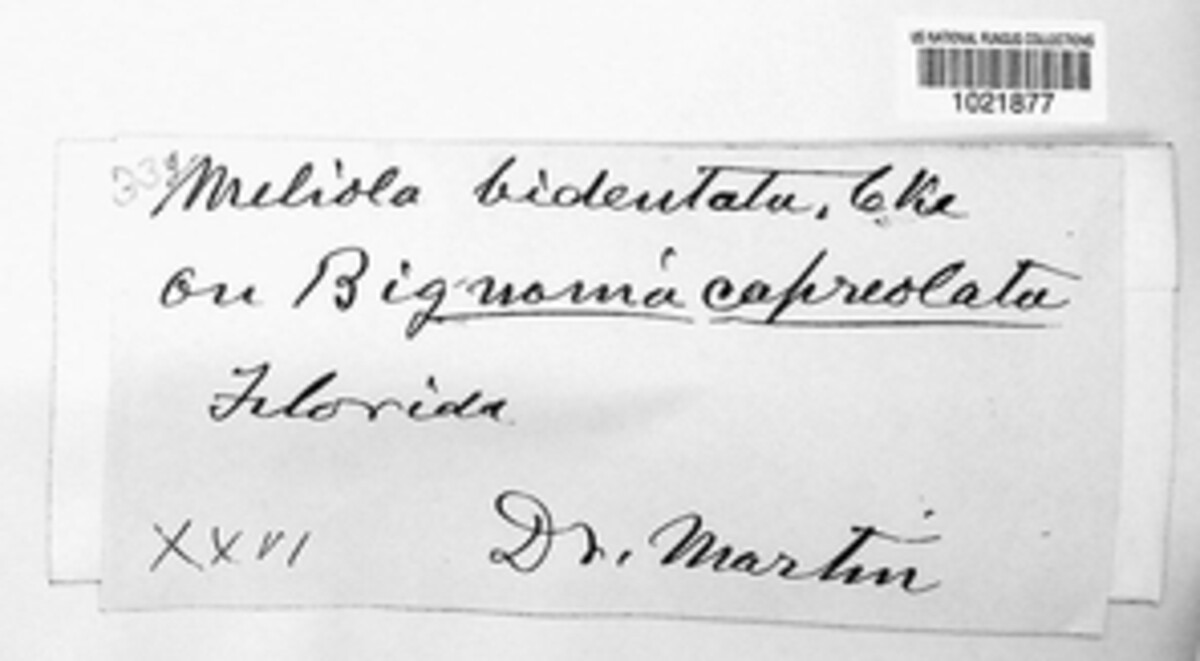 US NATIONAL FUNGUS COLLECTIONS
1021877
Meliola bidentata, Cke
on Bignonia capreolata
Florida
XXVI Dr. Martin